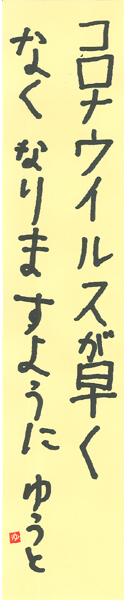 コロナウイルスが早く
なくなりますように ゆうと
ゆ